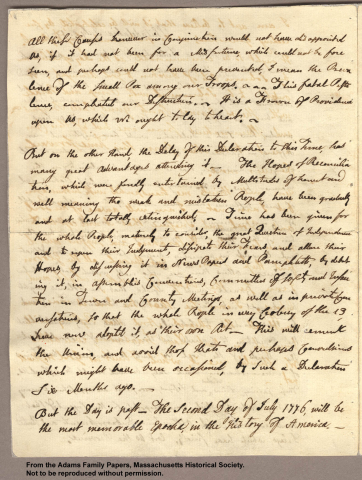 All these Causes however in Conjunction would not have disappointed
Us, if it had not been for a Misfortune, which could not be fore
seen, and perhaps could not have been prevented, I mean the Preva
lence of the Small Pox among our Troops. This fatal Pesti
lence, compleated our Destruction. — It is a Frown of Providence
upon Us, which We ought to lay to heart.
But on the other Hand, the Delay of this Declaration to this Time, has
many great Advantages attending it. — The Hopes of Reconcilia
tion, which were fondly entertained by Multitudes of honest and
well meaning tho weak and mistaken People, have been gradually
and at last totally extinguished. — Time has been given for
the whole People, maturely to consider the great Question of Independence
and to ripen their Judgments, dissipate their Fears, and allure their
Hopes, by discussing it in News Papers and Pamphletts, by debat
ing it, in Assemblies, Conventions, Committees of Safety and Inspec
tion, in Town and County Meetings, as well as in private Con
versations, so that the whole People in every Colony of the 13,
have now adopted it, as their own Act. — This will cement
the Union, and avoid those Heats and perhaps Convulsions
which might have been occasioned, by such a Declaration
Six Months ago. —
But the Day is past. — The Second Day of July 1776, will be
the most memorable Epocha, in the History of America. —
From the Adams Family Papers, Massachusetts Historical Society.
Not to be reproduced without permission.